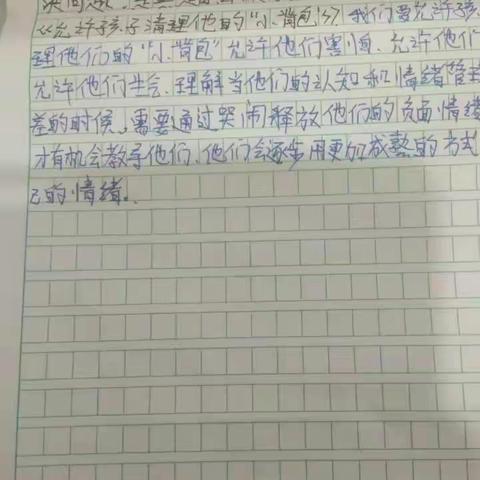 《允许孩子清理他的“小背包”》我们要允许孩
理他们的“小背包”允许他们害怕、允许他们
允许他们生气、理解当他们的认知和情绪管
差的时候，需要通过哭闹释放他们的负面情绪
才有机会教导他们、他们会逐步用更加成熟的方式
己的情绪。